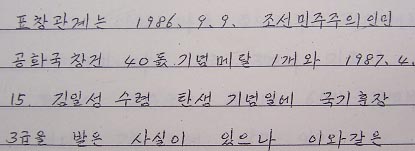 표창관계는 1986. 9. 9. 조선민주주의인민
공화국창건 40돐 기념메달 1개와 1987. 4.
15. 김일성 수령 탄생 기념일에 국기훈장
3급을 받은 사실이 있으나 이와같은